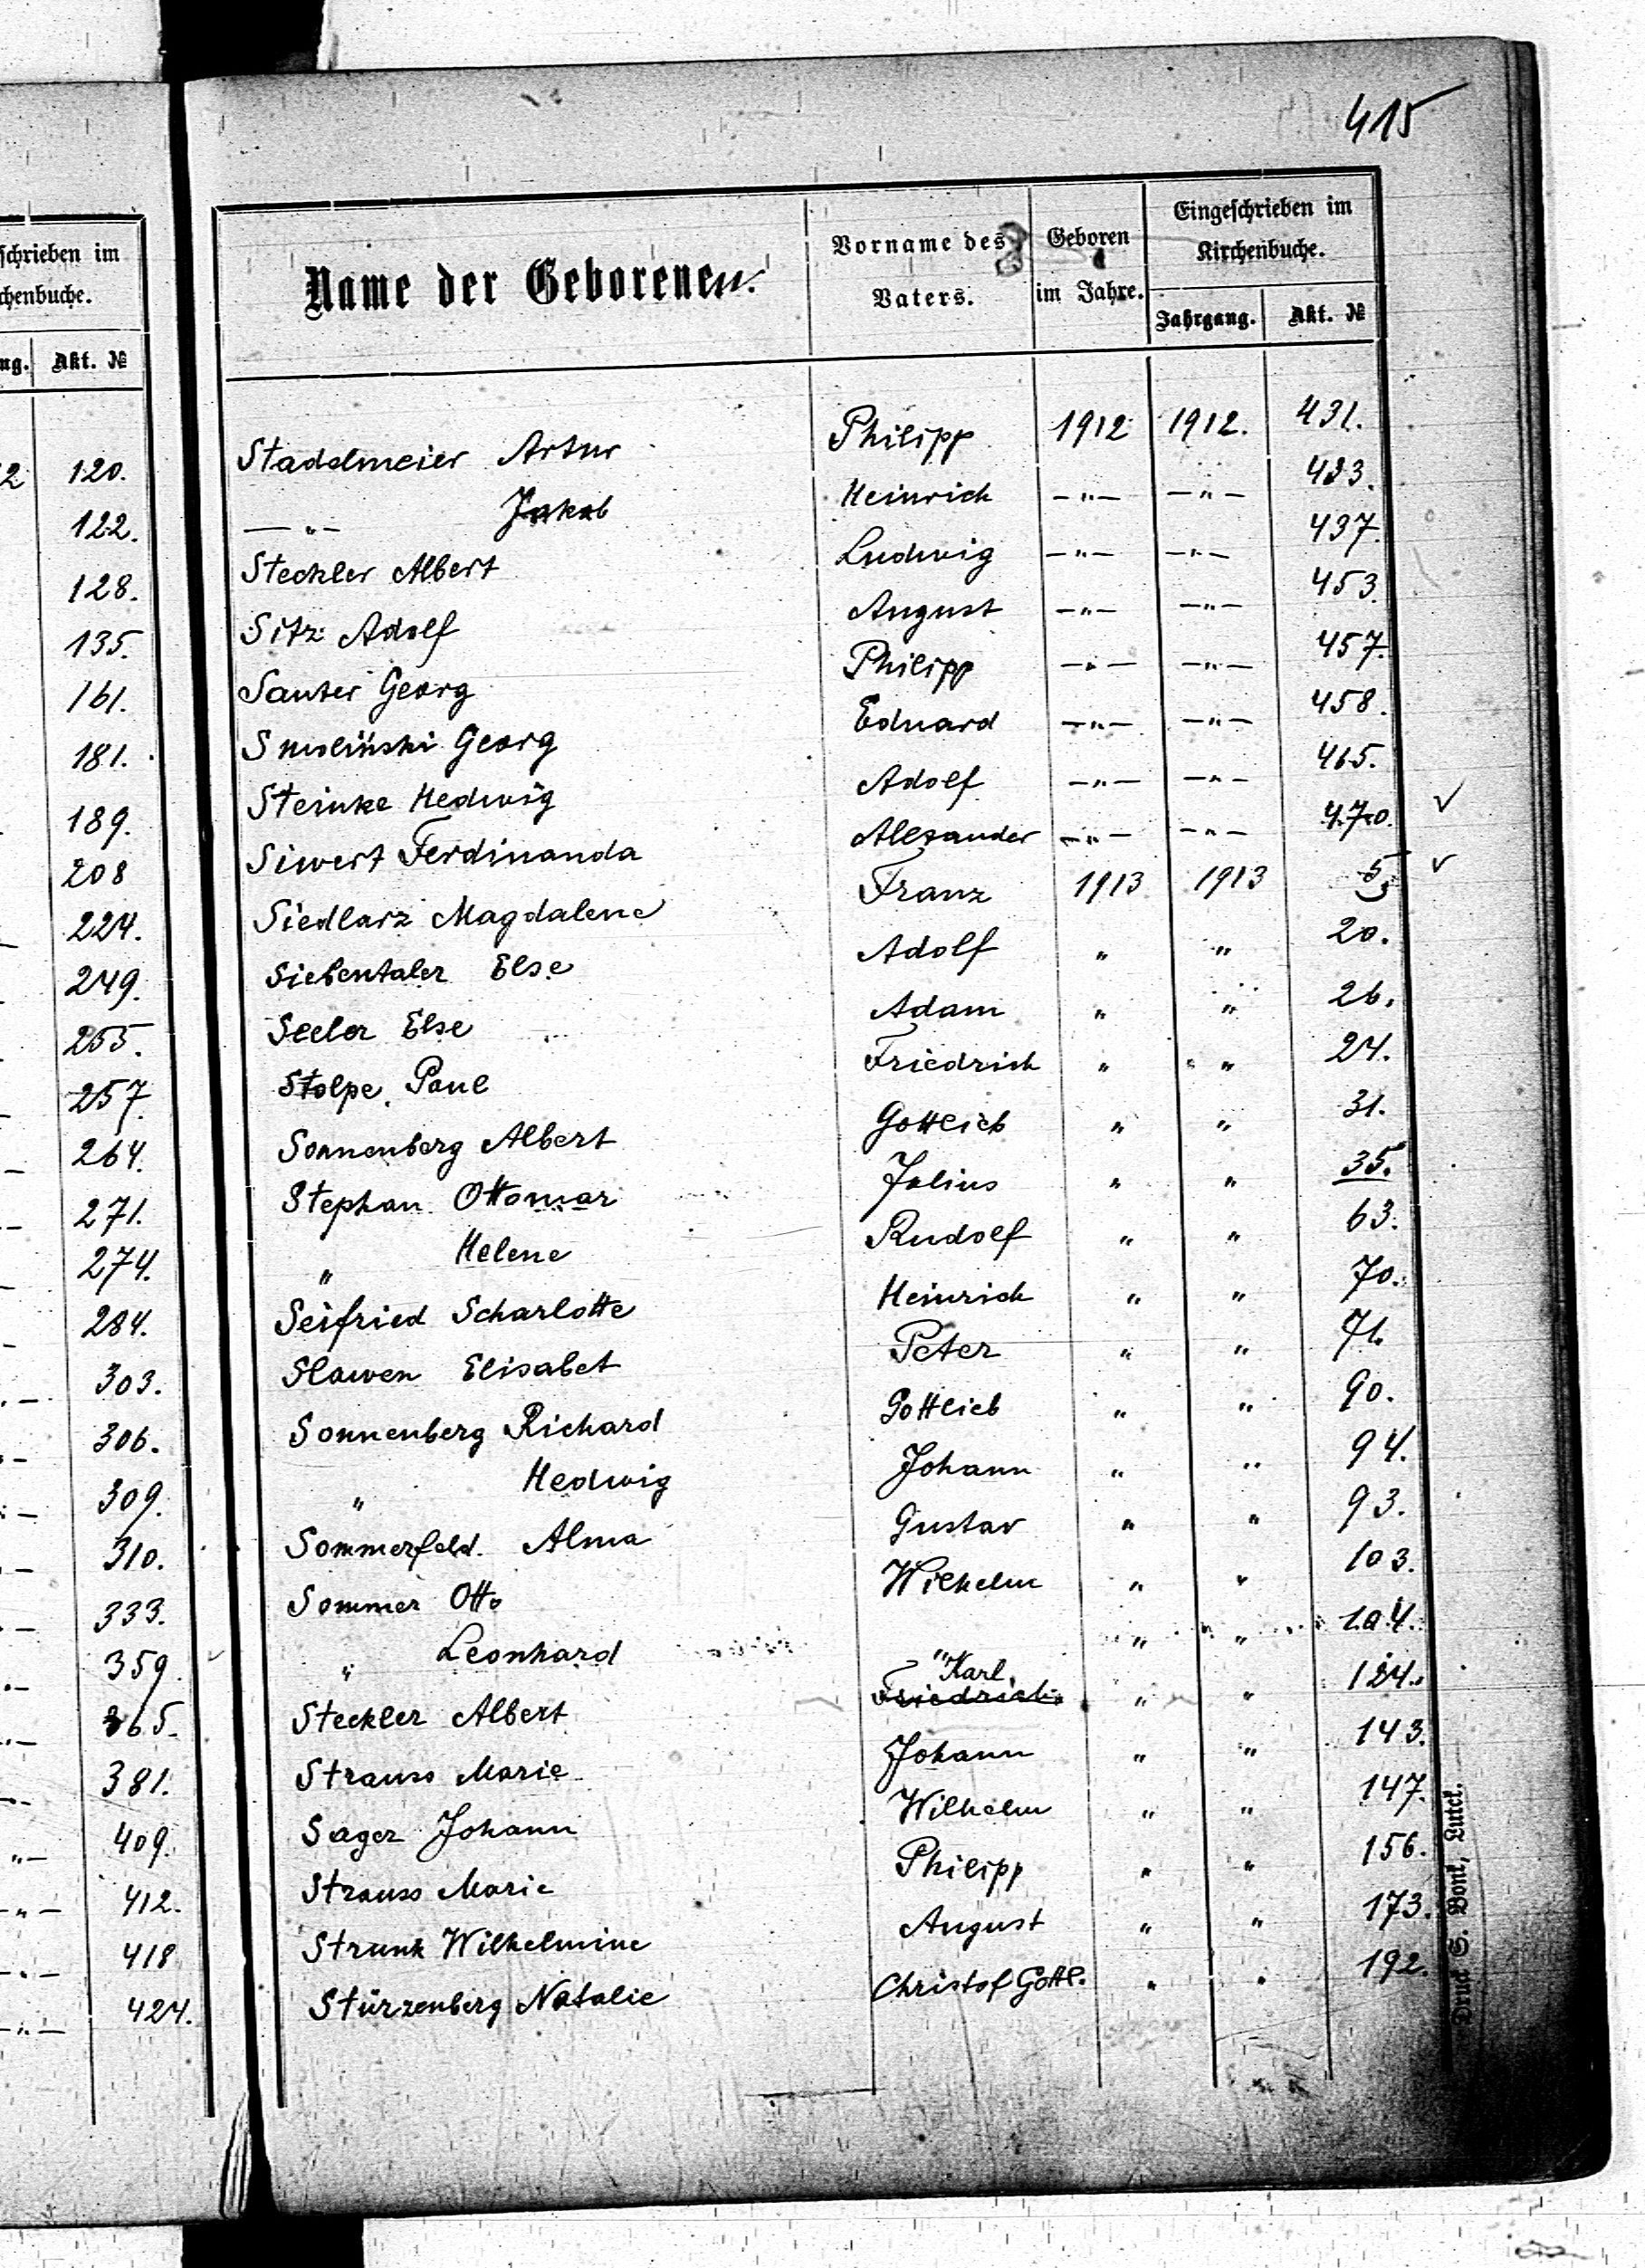 415
schrieben im
chenbuche.
ng. Akt. №
2 120.
122.
128.
135.
161.
181.
189.
208
224.
249.
255.
257.
264.
271.
274.
284.
303.
306.
309.
310.
333.
359.
365.
381.
409.
412.
418
424.
Name der Geborenen. Vorname des Vaters. Geboren im Jahre. Eingeschrieben im Kirchenbuche.
Jahrgang. Akt. №
Stadelmeier Artur Philipp 1912 1912. 431.
— " — Jakob Heinrich — " — — " — 433.
Steckler Albert Ludwig — " — — " — 437.
Sitz Adolf August — " — — " — 453.
Sauter Georg Philipp — " — — " — 457.
Smoliński Georg Eduard — " — — " — 458.
Steinke Hedwig Adolf — " — — " — 465.
Siwert Ferdinanda Alexander — " — — " — 470. ✓
Siedlarz Magdalene Franz 1913 1913 5 ✓
Siebentaler Else Adolf " " 20.
Seeler Else Adam " " 26.
Stolpe, Paul Friedrich " " 24.
Sonnenberg Albert Gottlieb " " 31.
Stephan Ottomar Julius " " 35.
" Helene Rudolf " " 63.
Seifried Scharlotte Heinrich " " 70.
Slawen Elisabet Peter " " 71.
Sonnenberg Richard Gottlieb " " 90.
" Hedwig Johann " " 94.
Sommerfeld Alma Gustav " " 93.
Sommer Otto Wilhelm " " 103.
" Leonhard " " " 104.
Steckler Albert Karl Friedrich " " 124.
Strauss Marie Johann " " 143.
Sager Johann Wilhelm " " 147.
Strauss Marie Philipp " " 156.
Strunk Wilhelmine August " " 173.
Stürzenberg Natalie Christof Gottl. " " 192.
Druck S. Bonk, Lutck.